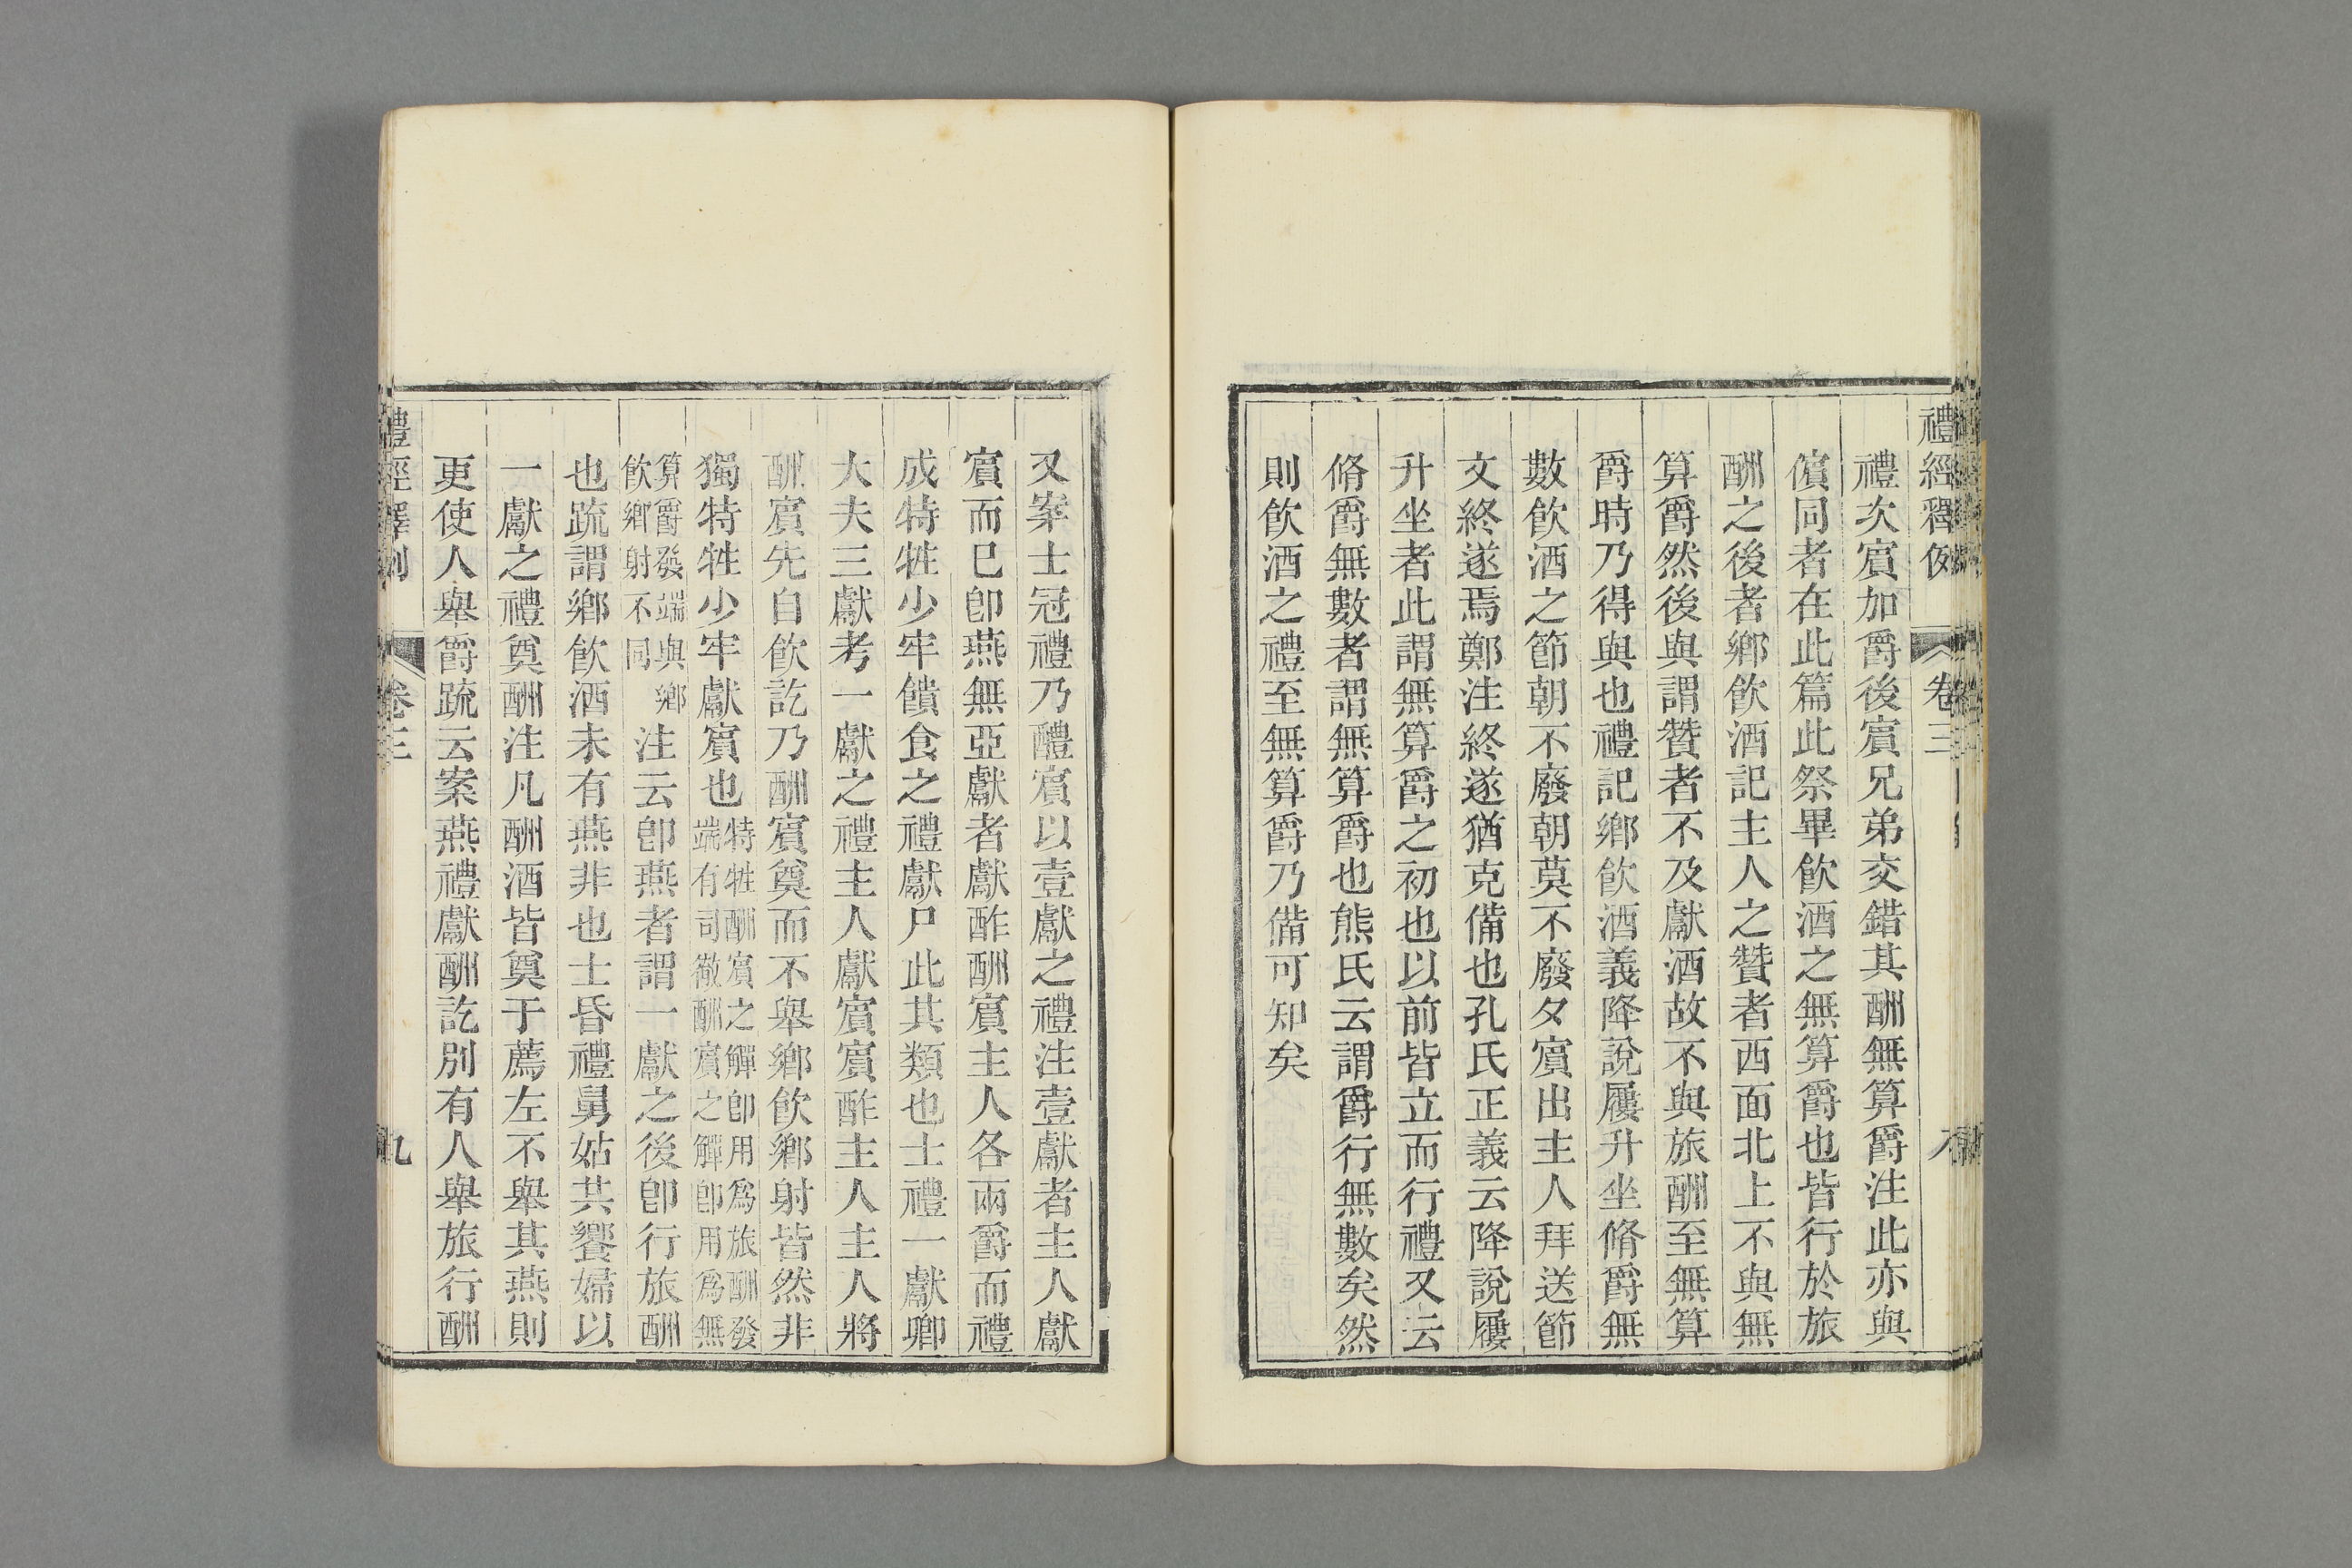 禮經釋例 卷三 八
禮次賓加爵後賓兄弟交錯其酬無算爵注此亦與
儐同者在此篇此祭畢飲酒之無算爵也皆行於旅
酬之後者鄉飲酒記主人之贊者西面北上不與無
算爵然後與謂贊者不及獻酒故不與旅酬至無算
爵時乃得與也禮記鄉飲酒義降說屨升坐脩爵無
數飲酒之節朝不廢朝莫不廢夕賓出主人拜送節
文終遂焉鄭注終遂猶充備也孔氏正義云降說屨
升坐者此謂無算爵之初也以前皆立而行禮又云
脩爵無數者謂無算爵也熊氏云謂爵行無數矣然
則飲酒之禮至無算爵乃備可知矣
又案士冠禮乃醴賓以壹獻之禮注壹獻者主人獻
賓而已卽燕無亞獻者獻酢酬賓主人各兩爵而禮
成特牲少牢饋食之禮獻尸此其類也士禮一獻卿
大夫三獻考一獻之禮主人獻賓賓酢主人主人將
酬賓先自飲訖乃酬賓奠而不舉鄉飲鄉射皆然非
獨特牲少牢獻賓也特牲酬賓之觶卽用爲旅酬發
端有司徹酬賓之觶卽用爲無
算爵發端與鄉
飲鄉射不同注云卽燕者謂一獻之後卽行旅酬
也疏謂鄉飲酒未有燕非也士昏禮舅姑共饗婦以
一獻之禮奠酬注凡酬酒皆奠于薦左不舉其燕則
更使人舉爵疏云案燕禮獻酬訖別有人舉旅行酬
禮經釋例 卷三 九